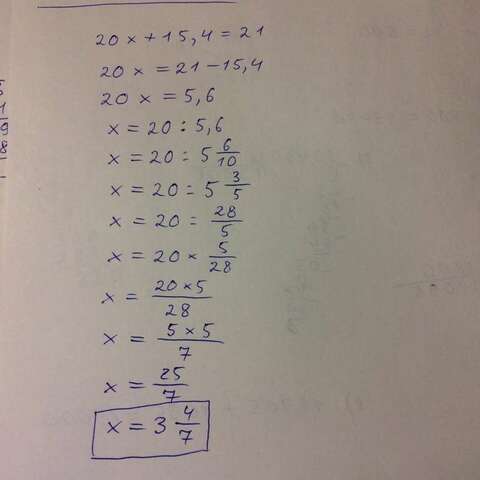 20x+15,4=21
20x=21-15,4
20x=5,6
x=20:5,6
x=20:5 6/10
x=20:5 3/5
x=20:28/5
x=20×5/28
x=20×5/28
x=5×5/7
x=25/7
x=3 4/7